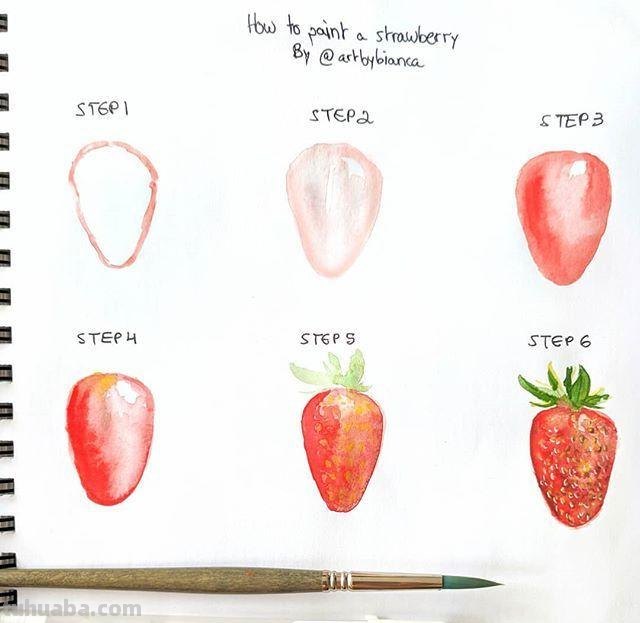 How to paint a strawberry
By @artbybianca
STEP 1
STEP 2
STEP 3
STEP 4
STEP 5
STEP 6